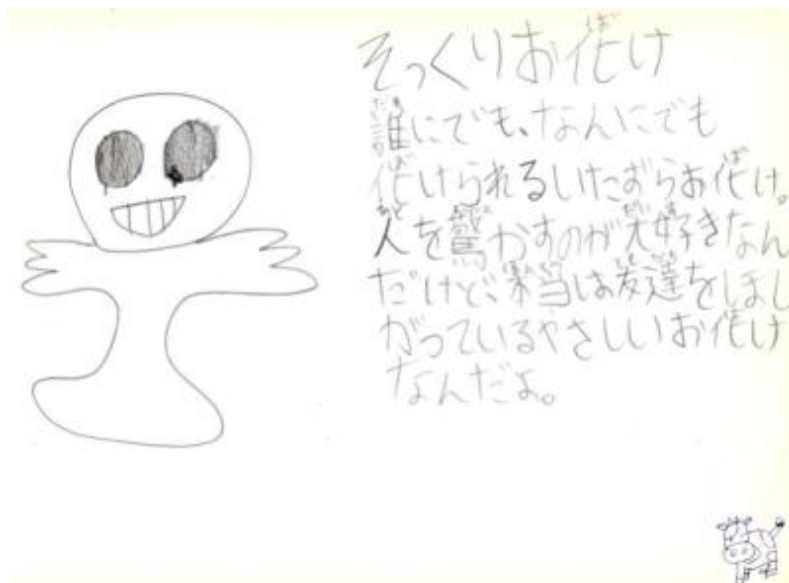 そっくりお化け
誰にでも、なんにでも
化けられるいたずらお化け。
人を驚かすのが大好きなん
だけど、本当は友達をほし
がっているやさしいお化け
なんだよ。